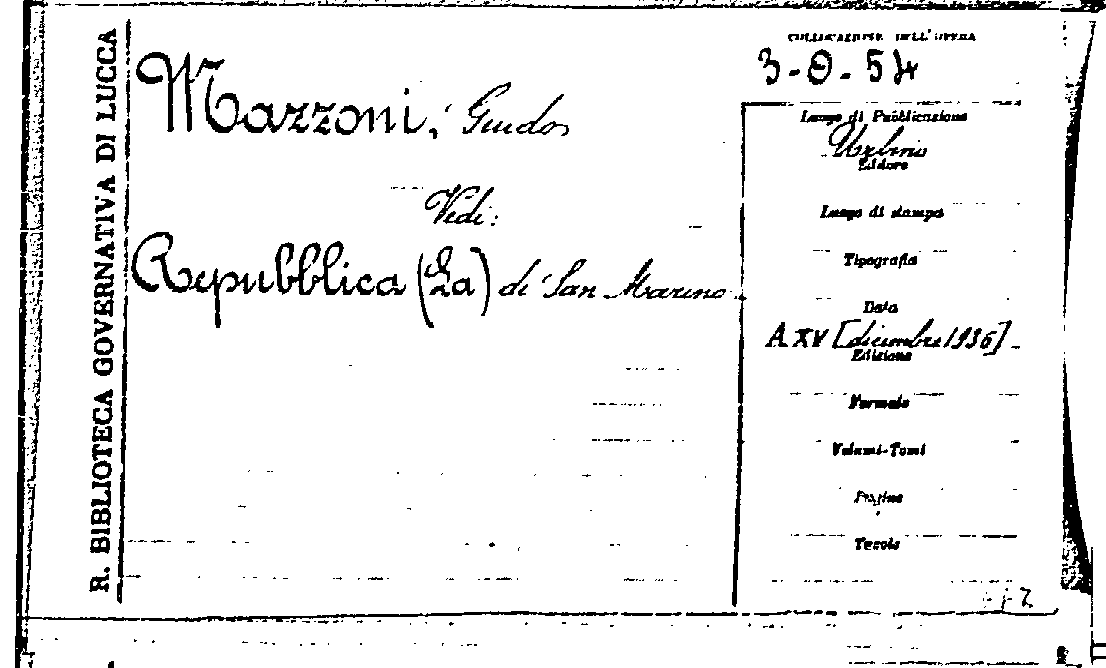 R. BIBLIOTECA GOVERNATIVA DI LUCCA
Mazzoni, Guido
Vedi:
Repubblica (La) di San Marino
COLLOCAZIONE DELL'OPERA
3-O-54
Luogo di Pubblicazione
Urbino
Editore
Luogo di stampa
Tipografia
Data
A. XV [dicembre 1936]
Edizione
Formato
Volumi-Tomi
Pagine
Tavole